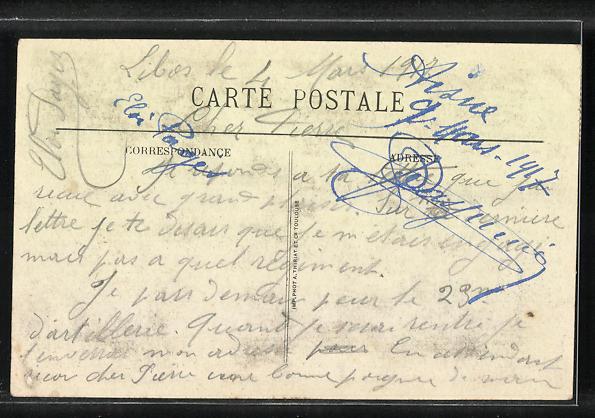 Libos le 4 Mars 1917
CARTE POSTALE
Cher Pierre
CORRESPONDANCE
ADRESSE
9 - Mars - 1917
Je réponds a ta que j'ai
recue avec grand plaisir. Sur dernière
lettre je te disais que je m'étais engagé
mais pas a quel régiment.
Je pars demain pour le 23me
d'artillerie. Quand je serai rentré je
t'enverrai mon adresse En attendant
recoi cher Pierre une bonne poignée de main
Eloi
IMP. PHOT. A. THIRIAT ET Cie TOULOUSE